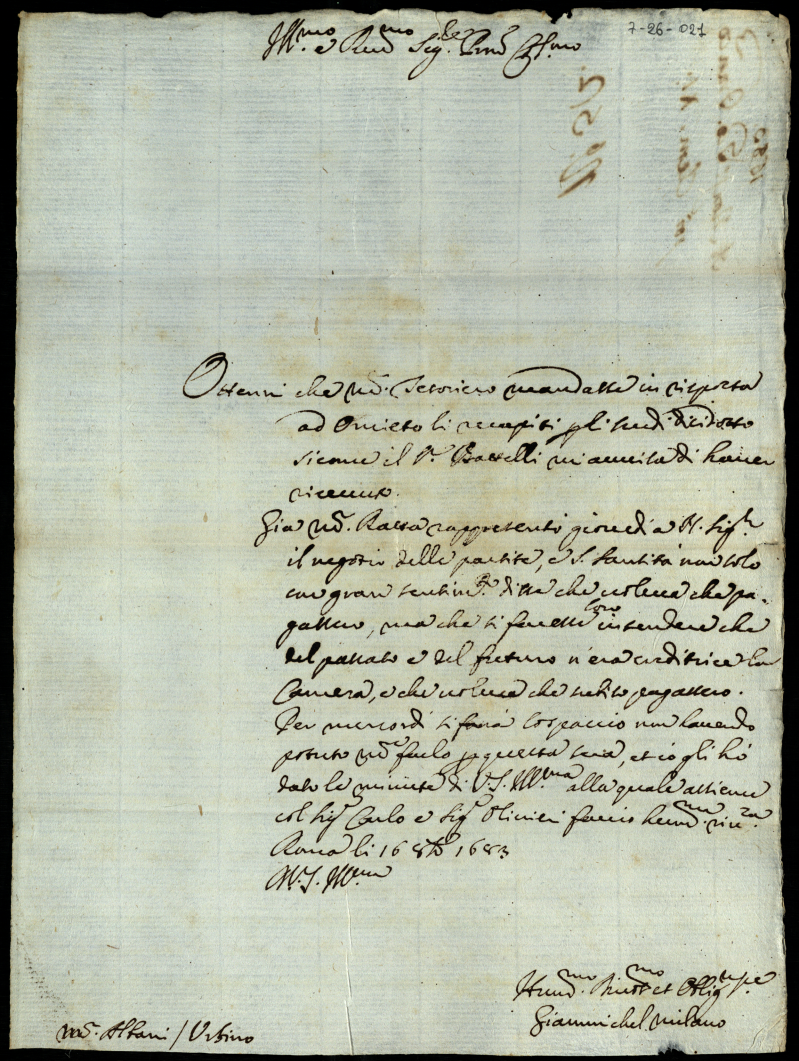 7-26-021
Ill.mo e Rev.mo Sig.re Pron Col.mo
Ottenni che Mon.r Tesoriero mandasse in risposta
ad Orvieto li recapiti p gli scudi dicidotto
sicome il S.r Battelli mi avvisa di haver
ricevuto.
Già Mon.r Ratta rappresentò giovedì a N. Sig.re
il negotio delle partite, e S. Santità non solo
con gran sentim.to disse che voleva che pa-
gassero, ma che si facesse loro intendere che
del passato e del futuro n'era creditrice la
Camera, e che voleva che subito pagassero.
Per mercordì si farà lo spaccio non havendo
potuto Mon.r farlo p questa sera, et io gli hò
dato le minute di V.S. Ill.ma alla quale assieme
col Sig.r Carlo e Sig.r Olivieri faccio hum.ma riv.za.
Roma li 16 8bre 1683
Di V.S. Ill.ma
Hum.mo Dev.mo et Oblig.mo Se.re
Giammichel Milano
Mon.r Albani / Urbino